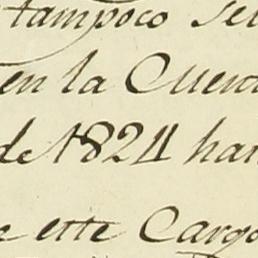 tampoco se
en la Cuen
de 1824 han
este Cargo